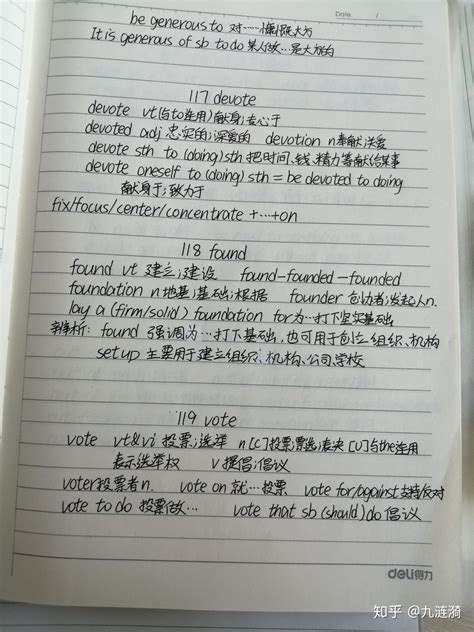 Date. /
be generous to 对……慷慨大方
It is generous of sb to do 某人做…是大方的
117 devote
devote vt(与to连用)献身;专心于
devoted adj 忠实的;深爱的 devotion n奉献;关爱
devote sth to (doing)sth 把时间、钱、精力等献给某事
devote oneself to (doing) sth = be devoted to doing
献身于;致力于
fix/focus/center/concentrate +…+on
118 found
found vt 建立;建设 found-founded-founded
foundation n地基;基础;根据 founder 创始者;发起人n.
lay a (firm/solid) foundation for为…打下坚实基础
辨析: found 强调为…打下基础,也可用于创立组织、机构
set up 主要用于建立组织、机构、公司、学校
119 vote
vote vt&vi 投票;选举 n [C]投票;票选;表决 [U]与the连用
表示选举权 v 提倡;倡议
voter投票者n. vote on 就…投票 vote for/against 支持/反对
vote to do 投票做… vote that sb (should) do 倡议
deli得力
知乎 @九涟漪